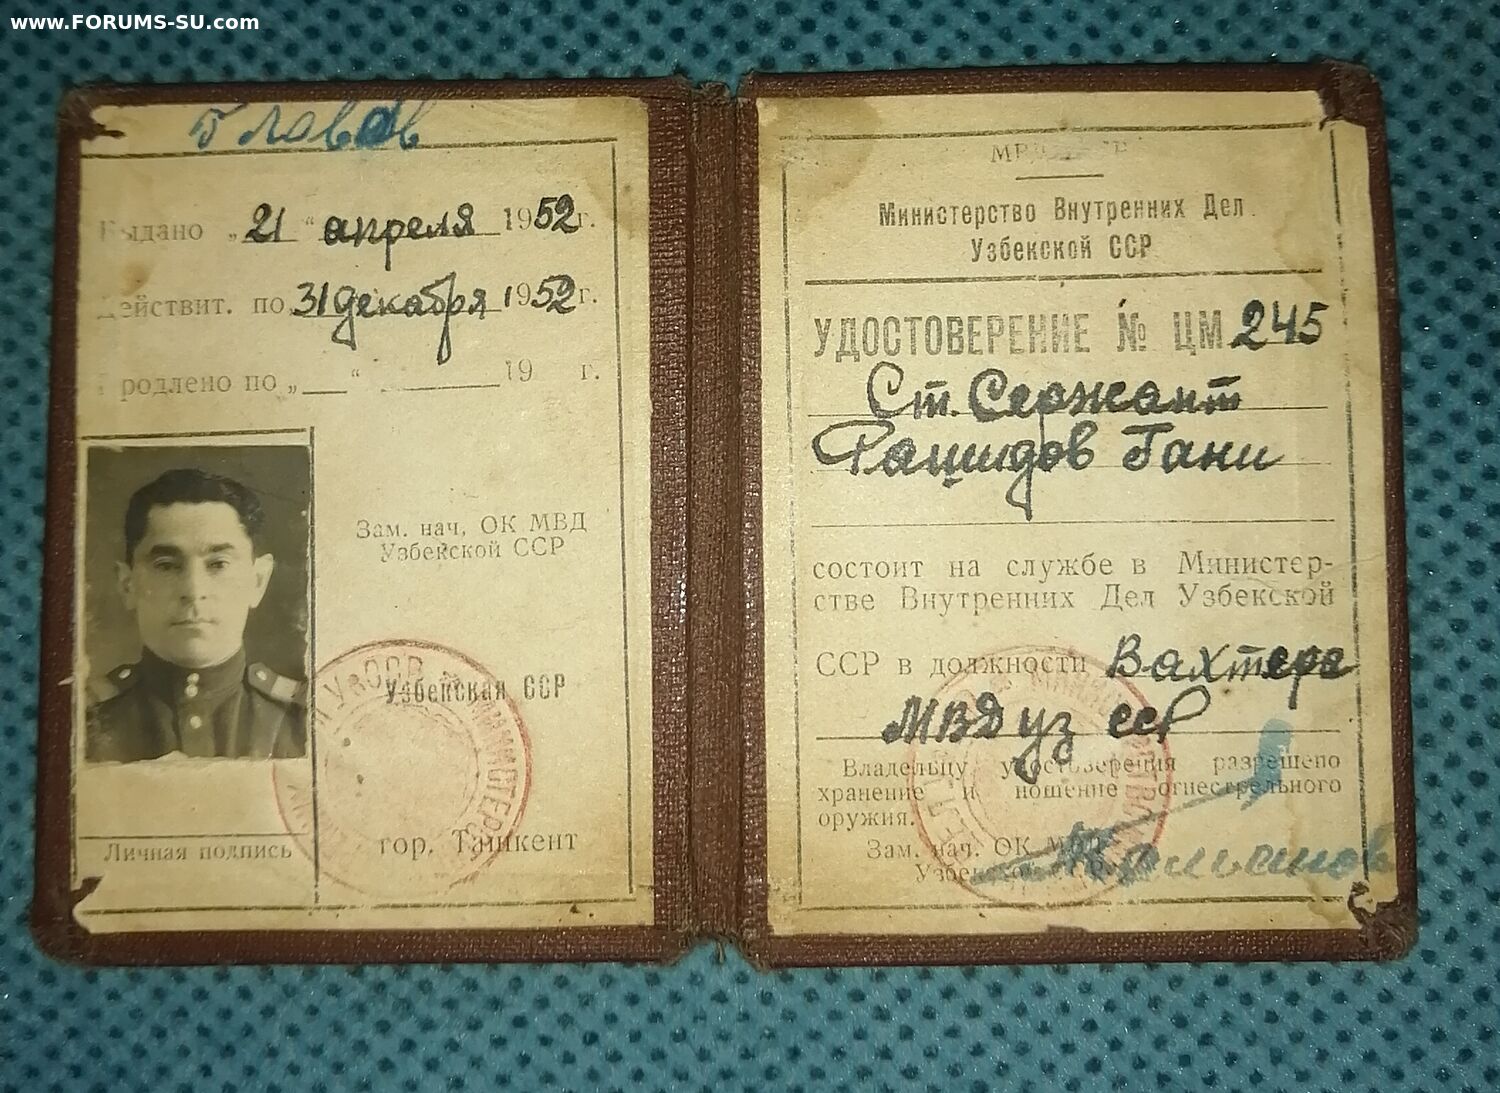 www.FORUMS-SU.com
Выдано „21“ апреля 1952 г.
Действит. по 31 декабря 1952 г.
Продлено по „ “ 19 г.
Зам. нач. ОК МВД
Узбекской ССР
Узбекская ССР
гор. Ташкент
Личная подпись
Министерство Внутренних Дел
Узбекской ССР
УДОСТОВЕРЕНИЕ № ЦМ 245
Ст. Сержант
Рашидов Гани
состоит на службе в Министер-
стве Внутренних Дел Узбекской
ССР в должности Вахтера
МВД уз ССР
Владельцу удостоверения разрешено
хранение и ношение огнестрельного
оружия.
Зам. нач. ОК МВД
Узбекской ССР